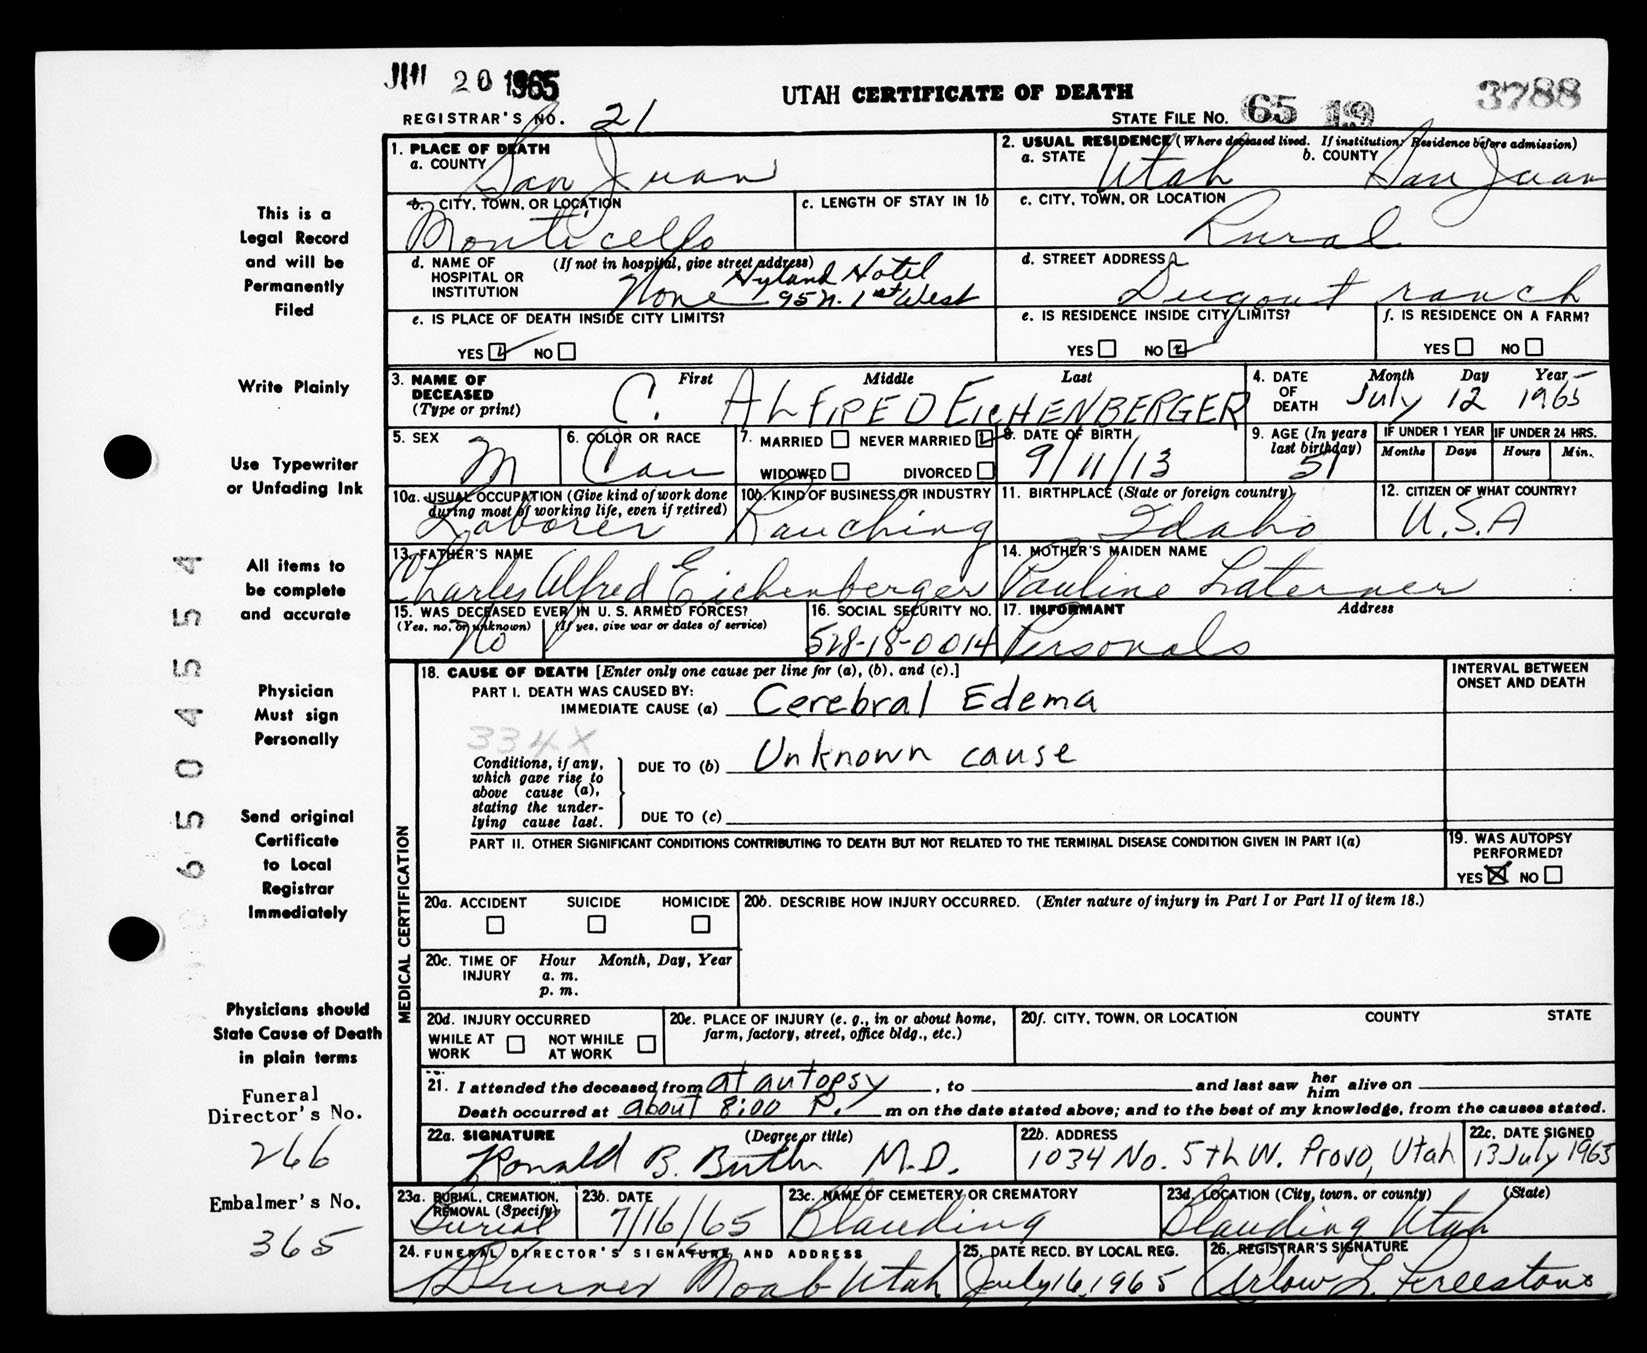 20 1965
UTAH CERTIFICATE OF DEATH
3788
REGISTRAR'S NO. 21
STATE FILE NO. 65 19
This is a
Legal Record
and will be
Permanently
Filed
Write Plainly
Use Typewriter
or Unfading Ink
All items to
be complete
and accurate
Physician
Must sign
Personally
Send original
Certificate
to Local
Registrar
Immediately
Physicians should
State Cause of Death
in plain terms
Funeral
Director's No.
266
Embalmer's No.
365
6504554
1. PLACE OF DEATH
a. COUNTY
San Juan
2. USUAL RESIDENCE (Where deceased lived. If institution: Residence before admission)
a. STATE Utah b. COUNTY San Juan
b. CITY, TOWN, OR LOCATION
Monticello
c. LENGTH OF STAY IN 1b
c. CITY, TOWN, OR LOCATION
Rural
d. NAME OF HOSPITAL OR INSTITUTION (If not in hospital, give street address)
None Hyland Hotel
95 N. 1st West
d. STREET ADDRESS
Dugout ranch
e. IS PLACE OF DEATH INSIDE CITY LIMITS?
YES NO
e. IS RESIDENCE INSIDE CITY LIMITS?
YES NO
f. IS RESIDENCE ON A FARM?
YES NO
3. NAME OF DECEASED (Type or print)
First Middle Last
C. ALFRED EICHENBERGER
4. DATE OF DEATH
Month Day Year
July 12 1965
5. SEX
M
6. COLOR OR RACE
Cau
7. MARRIED NEVER MARRIED
WIDOWED DIVORCED
8. DATE OF BIRTH
9/11/13
9. AGE (In years last birthday)
51
IF UNDER 1 YEAR
Months Days
IF UNDER 24 HRS.
Hours Min.
10a. USUAL OCCUPATION (Give kind of work done during most of working life, even if retired)
Laborer
10b. KIND OF BUSINESS OR INDUSTRY
Ranching
11. BIRTHPLACE (State or foreign country)
Idaho
12. CITIZEN OF WHAT COUNTRY?
U.S.A
13. FATHER'S NAME
Charles Alfred Eichenberger
14. MOTHER'S MAIDEN NAME
Pauline Laterner
15. WAS DECEASED EVER IN U. S. ARMED FORCES?
(Yes, no, or unknown) (If yes, give war or dates of service)
No
16. SOCIAL SECURITY NO.
528-18-0014
17. INFORMANT Address
Personals
MEDICAL CERTIFICATION
18. CAUSE OF DEATH [Enter only one cause per line for (a), (b), and (c).]
INTERVAL BETWEEN ONSET AND DEATH
PART I. DEATH WAS CAUSED BY:
IMMEDIATE CAUSE (a) Cerebral Edema
334X
Conditions, if any, which gave rise to above cause (a), stating the underlying cause last.
DUE TO (b) Unknown cause
DUE TO (c)
PART II. OTHER SIGNIFICANT CONDITIONS CONTRIBUTING TO DEATH BUT NOT RELATED TO THE TERMINAL DISEASE CONDITION GIVEN IN PART I(a)
19. WAS AUTOPSY PERFORMED?
YES NO
20a. ACCIDENT SUICIDE HOMICIDE
20b. DESCRIBE HOW INJURY OCCURRED. (Enter nature of injury in Part I or Part II of item 18.)
20c. TIME OF INJURY
Hour Month, Day, Year
a. m.
p. m.
20d. INJURY OCCURRED
WHILE AT WORK NOT WHILE AT WORK
20e. PLACE OF INJURY (e. g., in or about home, farm, factory, street, office bldg., etc.)
20f. CITY, TOWN, OR LOCATION COUNTY STATE
21. I attended the deceased from at autopsy, to and last saw her him alive on
Death occurred at about 8:00 P. m on the date stated above; and to the best of my knowledge, from the causes stated.
22a. SIGNATURE (Degree or title)
Ronald B. M.D.
22b. ADDRESS
1034 No. 5th W. Provo, Utah
22c. DATE SIGNED
13 July 1965
23a. BURIAL, CREMATION, REMOVAL (Specify)
Burial
23b. DATE
7/16/65
23c. NAME OF CEMETERY OR CREMATORY
Blanding
23d. LOCATION (City, town, or county) (State)
Blanding Utah
24. FUNERAL DIRECTOR'S SIGNATURE AND ADDRESS
Moab Utah
25. DATE RECD. BY LOCAL REG.
July 16, 1965
26. REGISTRAR'S SIGNATURE
Arlow L. Freestone